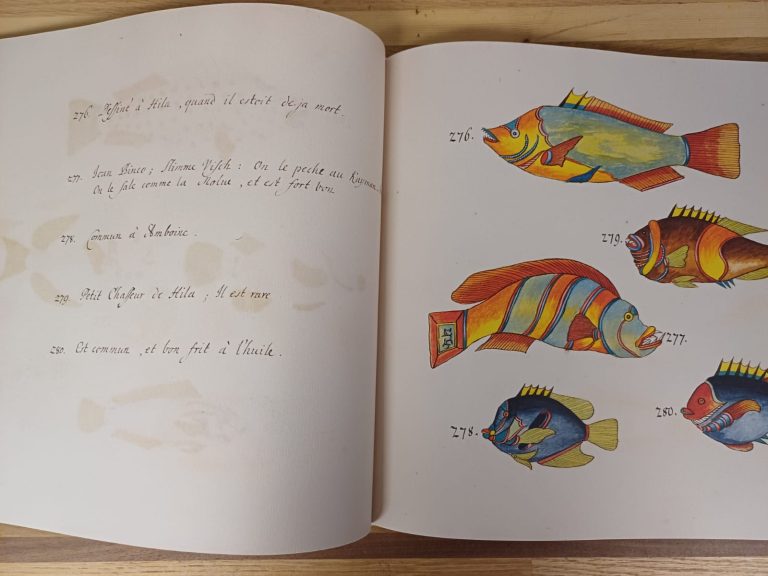 276. Dessiné à Hila, quand il estoit deja mort.
277. Jean Dinco; Slimme Visch: On le peche au Kayman.
On le sale comme la Molue, et est fort bon
278. Commun à Amboine.
279. Petit Chasseur de Hila; Il est rare
280. Est commun, et bon frit à l'huile.
276.
279.
277.
278.
280.